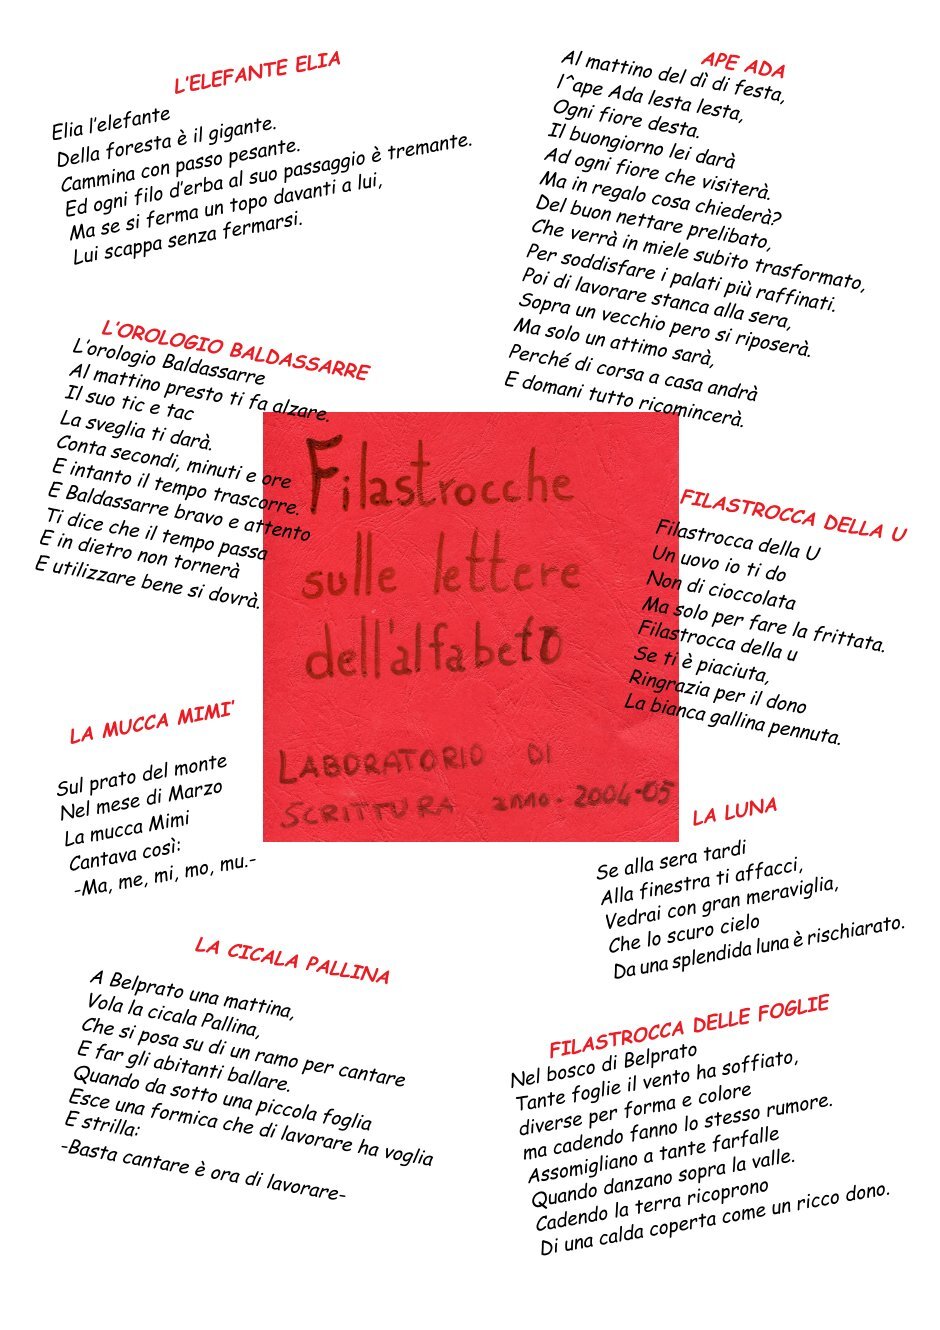 L'ELEFANTE ELIA
Elia l'elefante
Della foresta è il gigante.
Cammina con passo pesante.
Ed ogni filo d'erba al suo passaggio è tremante.
Ma se si ferma un topo davanti a lui,
Lui scappa senza fermarsi.
APE ADA
Al mattino del dì di festa,
l^ape Ada lesta lesta,
Ogni fiore desta.
Il buongiorno lei darà
Ad ogni fiore che visiterà.
Ma in regalo cosa chiederà?
Del buon nettare prelibato,
Che verrà in miele subito trasformato,
Per soddisfare i palati più raffinati.
Poi di lavorare stanca alla sera,
Sopra un vecchio pero si riposerà.
Ma solo un attimo sarà,
Perché di corsa a casa andrà
E domani tutto ricomincerà.
L'OROLOGIO BALDASSARRE
L'orologio Baldassarre
Al mattino presto ti fa alzare.
Il suo tic e tac
La sveglia ti darà.
Conta secondi, minuti e ore
E intanto il tempo trascorre.
E Baldassarre bravo e attento
Ti dice che il tempo passa
E in dietro non tornerà
E utilizzare bene si dovrà.
Filastrocche
sulle lettere
dell'alfabeto
LABORATORIO DI
SCRITTURA anno-2004-05
FILASTROCCA DELLA U
Filastrocca della U
Un uovo io ti do
Non di cioccolata
Ma solo per fare la frittata.
Filastrocca della u
Se ti è piaciuta,
Ringrazia per il dono
La bianca gallina pennuta.
LA MUCCA MIMI'
Sul prato del monte
Nel mese di Marzo
La mucca Mimi
Cantava così:
-Ma, me, mi, mo, mu.-
LA LUNA
Se alla sera tardi
Alla finestra ti affacci,
Vedrai con gran meraviglia,
Che lo scuro cielo
Da una splendida luna è rischiarato.
LA CICALA PALLINA
A Belprato una mattina,
Vola la cicala Pallina,
Che si posa su di un ramo per cantare
E far gli abitanti ballare.
Quando da sotto una piccola foglia
Esce una formica che di lavorare ha voglia
E strilla:
-Basta cantare è ora di lavorare-
FILASTROCCA DELLE FOGLIE
Nel bosco di Belprato
Tante foglie il vento ha soffiato,
diverse per forma e colore
ma cadendo fanno lo stesso rumore.
Assomigliano a tante farfalle
Quando danzano sopra la valle.
Cadendo la terra ricoprono
Di una calda coperta come un ricco dono.